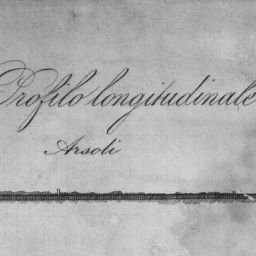 Profilo longitudinale
Arsoli